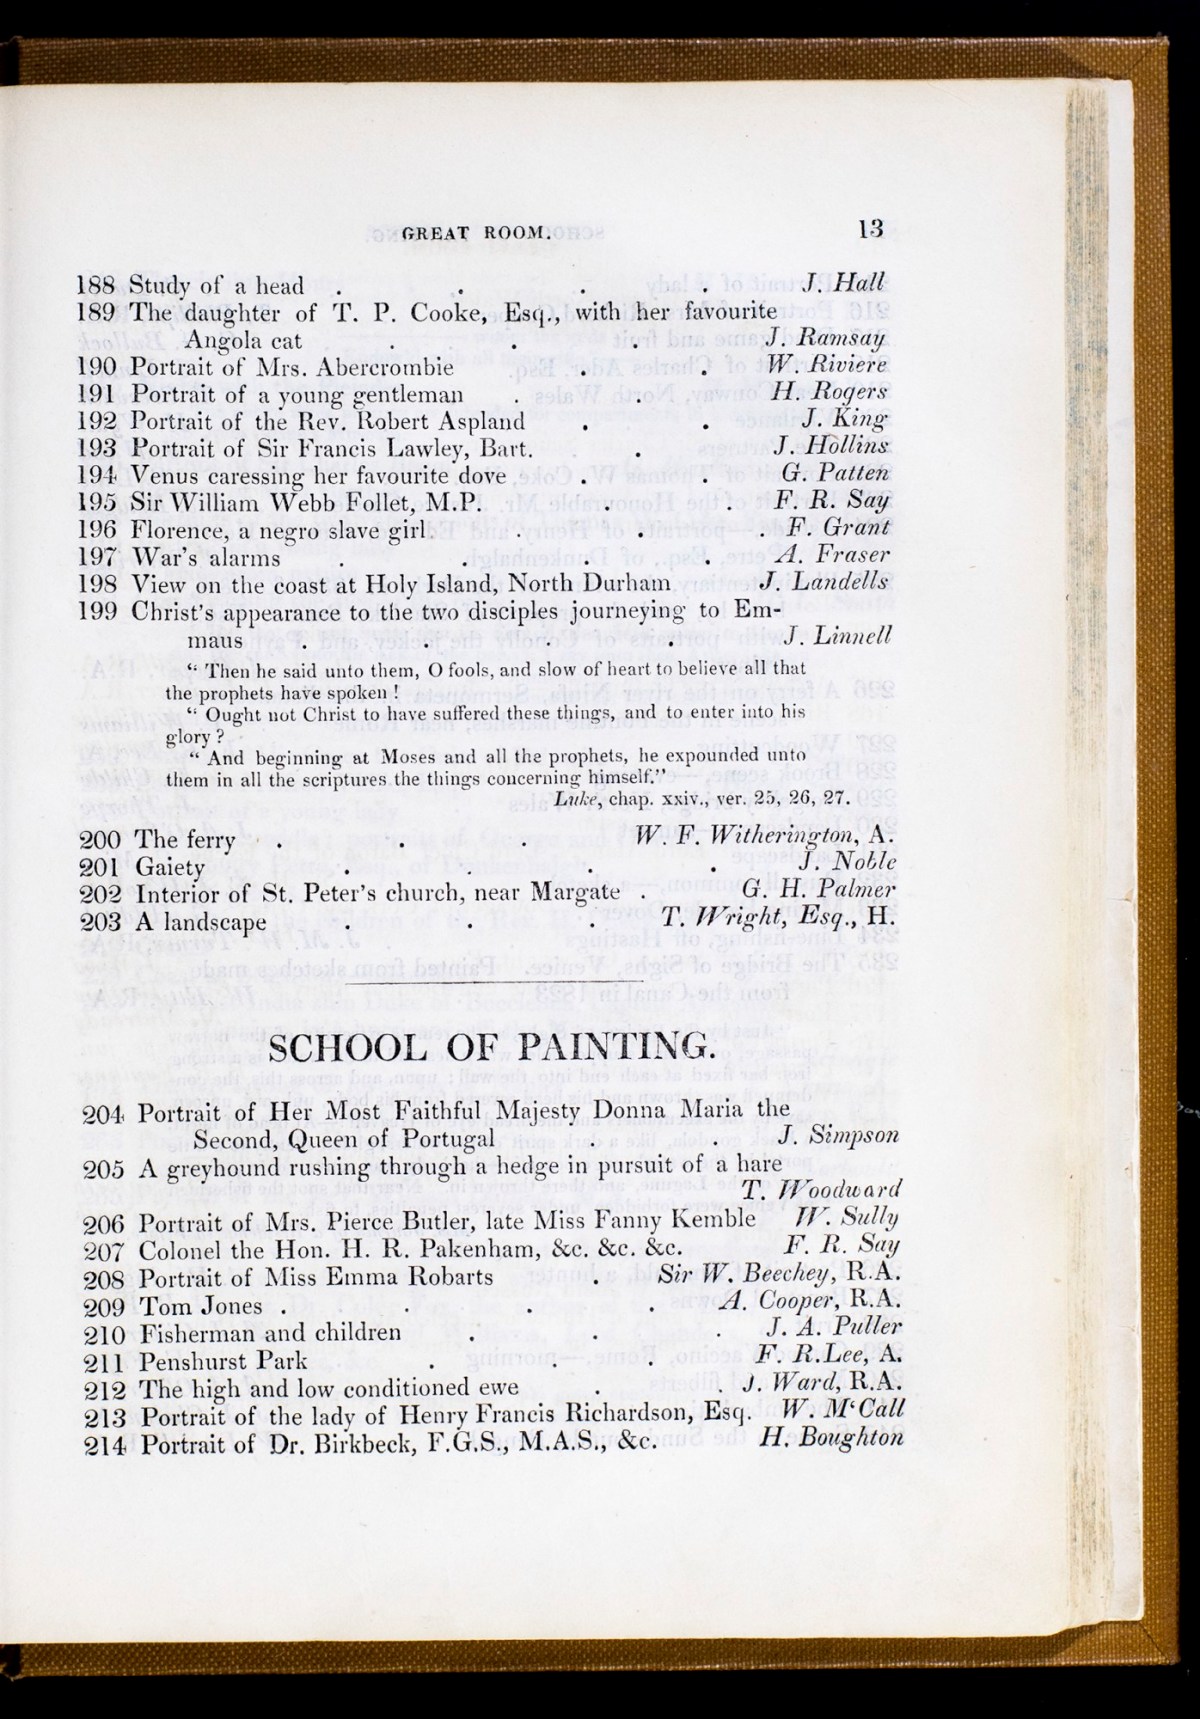 GREAT ROOM. 13
188 Study of a head . . . . J. Hall
189 The daughter of T. P. Cooke, Esq., with her favourite
Angola cat . . . . J. Ramsay
190 Portrait of Mrs. Abercrombie . . W. Riviere
191 Portrait of a young gentleman . . H. Rogers
192 Portrait of the Rev. Robert Aspland . . J. King
193 Portrait of Sir Francis Lawley, Bart. . J. Hollins
194 Venus caressing her favourite dove . . G. Patten
195 Sir William Webb Follet, M.P. . . F. R. Say
196 Florence, a negro slave girl . . . F. Grant
197 War's alarms . . . . A. Fraser
198 View on the coast at Holy Island, North Durham J. Landells
199 Christ's appearance to the two disciples journeying to Em-
maus . . . . J. Linnell
“ Then he said unto them, O fools, and slow of heart to believe all that
the prophets have spoken !
“ Ought not Christ to have suffered these things, and to enter into his
glory ?
“ And beginning at Moses and all the prophets, he expounded unto
them in all the scriptures the things concerning himself.”
Luke, chap. xxiv., ver. 25, 26, 27.
200 The ferry . . . W. F. Witherington, A.
201 Gaiety . . . . J. Noble
202 Interior of St. Peter's church, near Margate . G. H. Palmer
203 A landscape . . . T. Wright, Esq., H.
SCHOOL OF PAINTING.
204 Portrait of Her Most Faithful Majesty Donna Maria the
Second, Queen of Portugal . . J. Simpson
205 A greyhound rushing through a hedge in pursuit of a hare
T. Woodward
206 Portrait of Mrs. Pierce Butler, late Miss Fanny Kemble W. Sully
207 Colonel the Hon. H. R. Pakenham, &c. &c. &c. F. R. Say
208 Portrait of Miss Emma Robarts . Sir W. Beechey, R.A.
209 Tom Jones . . . . A. Cooper, R.A.
210 Fisherman and children . . . J. A. Puller
211 Penshurst Park . . . F. R. Lee, A.
212 The high and low conditioned ewe . . J. Ward, R.A.
213 Portrait of the lady of Henry Francis Richardson, Esq. W. M‘Call
214 Portrait of Dr. Birkbeck, F.G.S., M.A.S., &c. H. Boughton